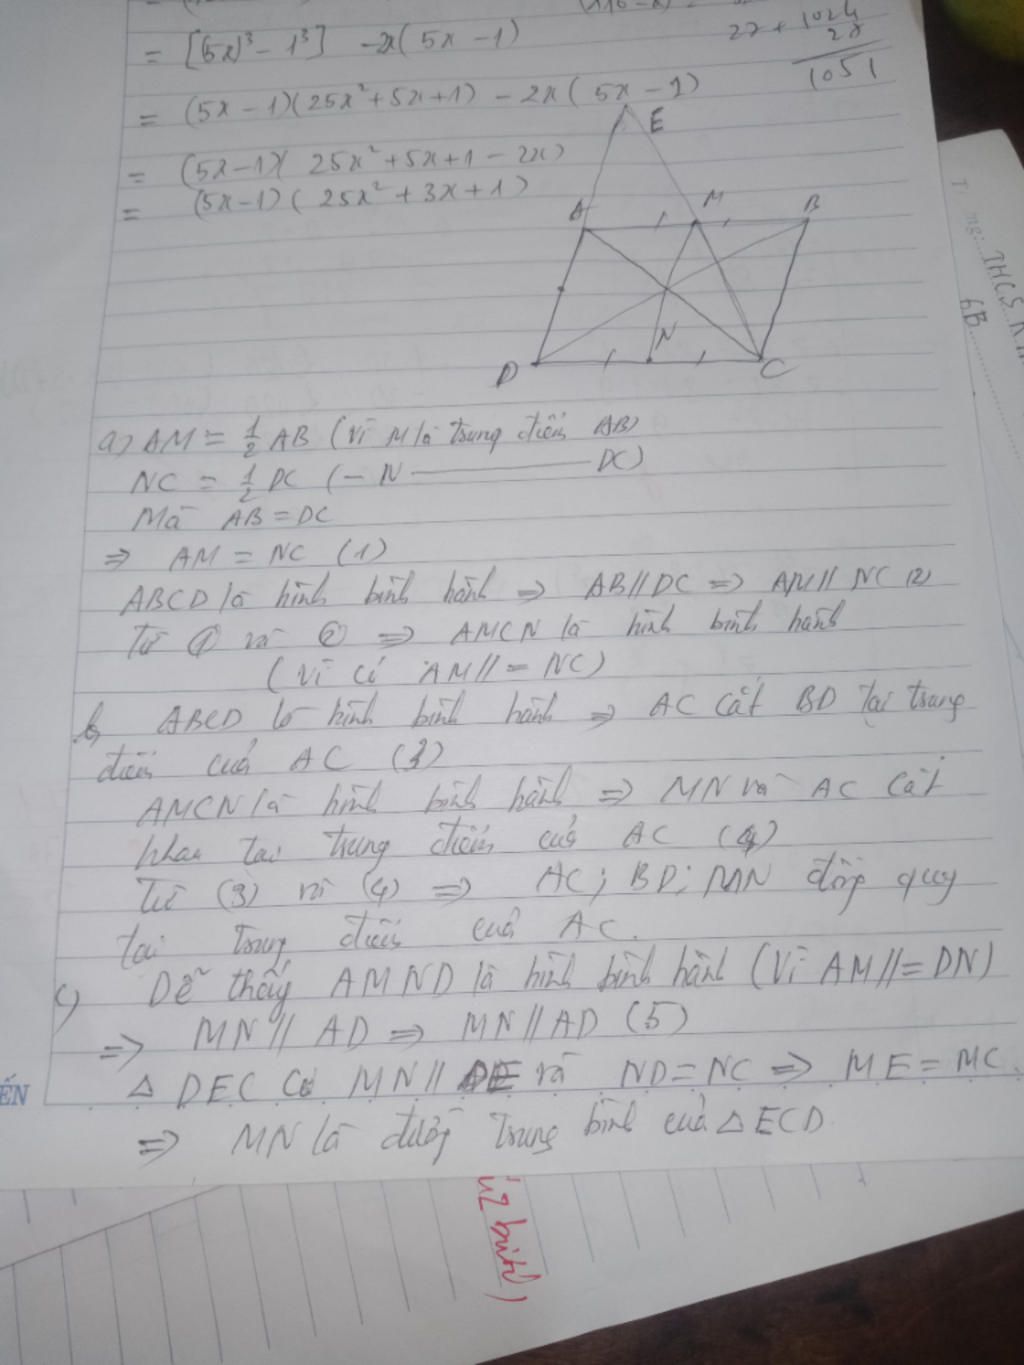 = [(5x)³ - 1³] - 2x(5x - 1)
27 + 1024
27
1051
= (5x - 1)(25x² + 5x + 1) - 2x(5x - 1)
= (5x - 1)(25x² + 5x + 1 - 2x)
= (5x - 1)(25x² + 3x + 1)
E
A M B
N
D C
a) AM = 1/2 AB (Vì M là trung điểm AB)
NC = 1/2 DC (— N ——— DC)
Mà AB = DC
=> AM = NC (1)
ABCD là hình bình hành => AB // DC => AM // NC (2)
Từ (1) và (2) => AMCN là hình bình hành
(Vì có AM // = NC)
b, ABCD là hình bình hành => AC cắt BD tại trung
điểm của AC (3)
AMCN là hình bình hành => MN và AC cắt
nhau tại trung điểm của AC (4)
Từ (3) và (4) => AC; BD; MN đồng quy
tại trung điểm của AC.
c) Dễ thấy AMND là hình bình hành (Vì AM // = DN)
=> MN // AD => MN // AD (5)
Δ DEC có MN // DE và ND = NC => ME = MC.
=> MN là đường trung bình của Δ ECD.
ẾN
THCS
6B